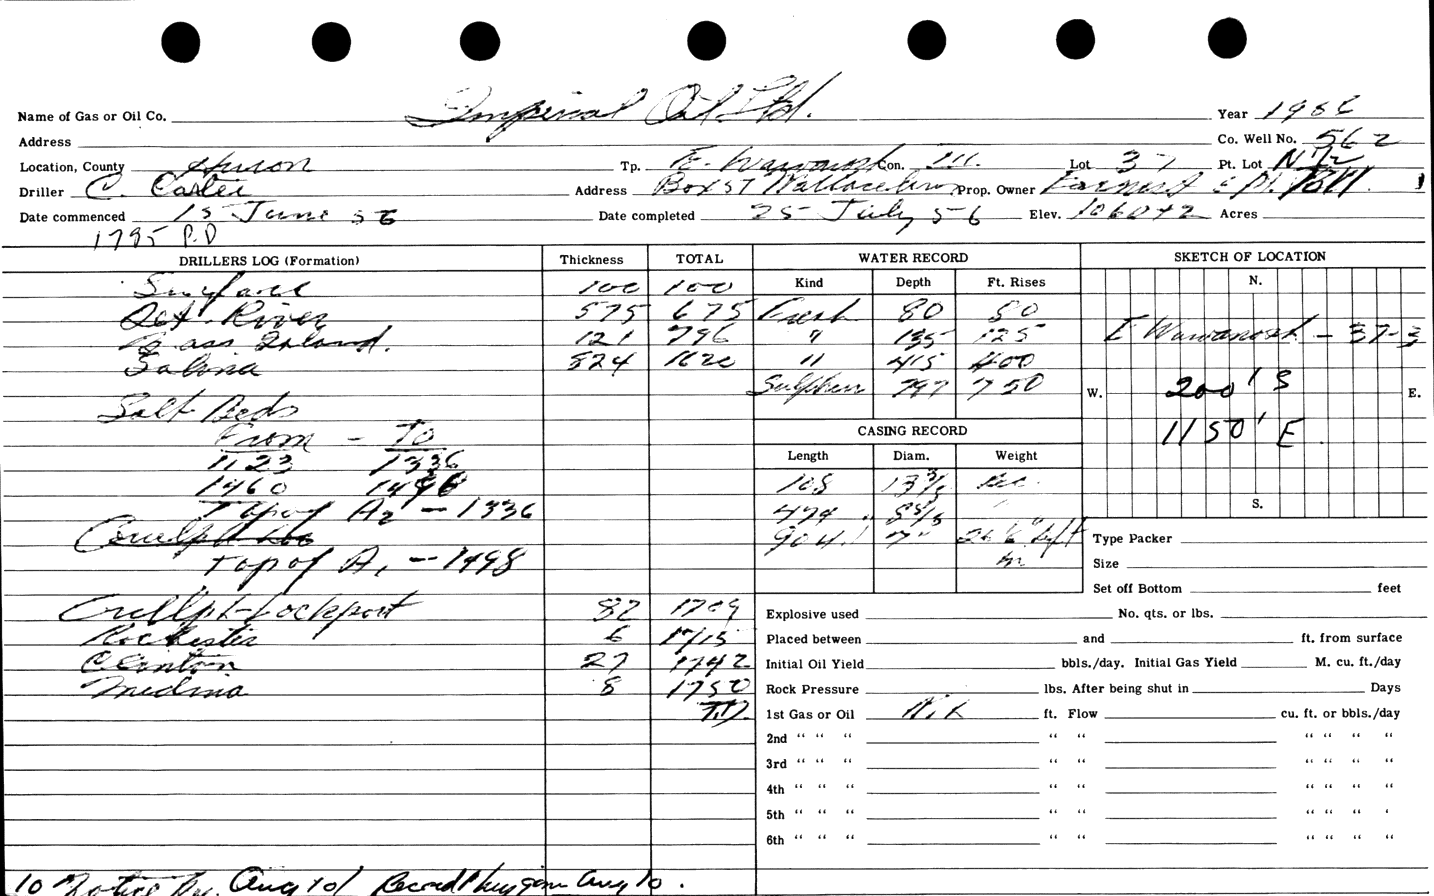 Name of Gas or Oil Co. Imperial Oil Ltd. Year 1956
Address Co. Well No. 562
Location, County Huron Tp. E. Wawanosh Con. III. Lot 37 Pt. Lot N 1/2
Driller C. Carter Address Box 57 Wallaceburg Prop. Owner
Date commenced 15 June 56 Date completed 25 July 56 Elev. 1060+2 Acres
1795 P.D
DRILLERS LOG (Formation) Thickness TOTAL WATER RECORD SKETCH OF LOCATION
Kind Depth Ft. Rises N.
Surface 100 100
Det. River 575 675 Fresh 80 50
Bass Island. 121 796 " 135 125 E Wawanosh - 37-3
Salina 824 1620 " 415 400
Sulphur 797 750
W. 200' S E.
Salt Beds
From - To CASING RECORD 1150' E
1123 1336 Length Diam. Weight
1460 1496 108 13 3/8
Top of A2 - 1336 474 S.
904' 7" Type Packer
Top of A1 - 1498 Size
Set off Bottom feet
Guelph-Lockport 82 1709 Explosive used No. qts. or lbs.
Rochester 6 1715 Placed between and ft. from surface
Clinton 27 1742 Initial Oil Yield bbls./day. Initial Gas Yield M. cu. ft./day
Medina 8 1750 Rock Pressure lbs. After being shut in Days
T.D. 1st Gas or Oil Nil ft. Flow cu. ft. or bbls./day
2nd " " " " " " " " "
3rd " " " " " " " " "
4th " " " " " " " " "
5th " " " " " " " " '
6th " " " " " " " " "
10 Aug 10/ Record Aug 10.